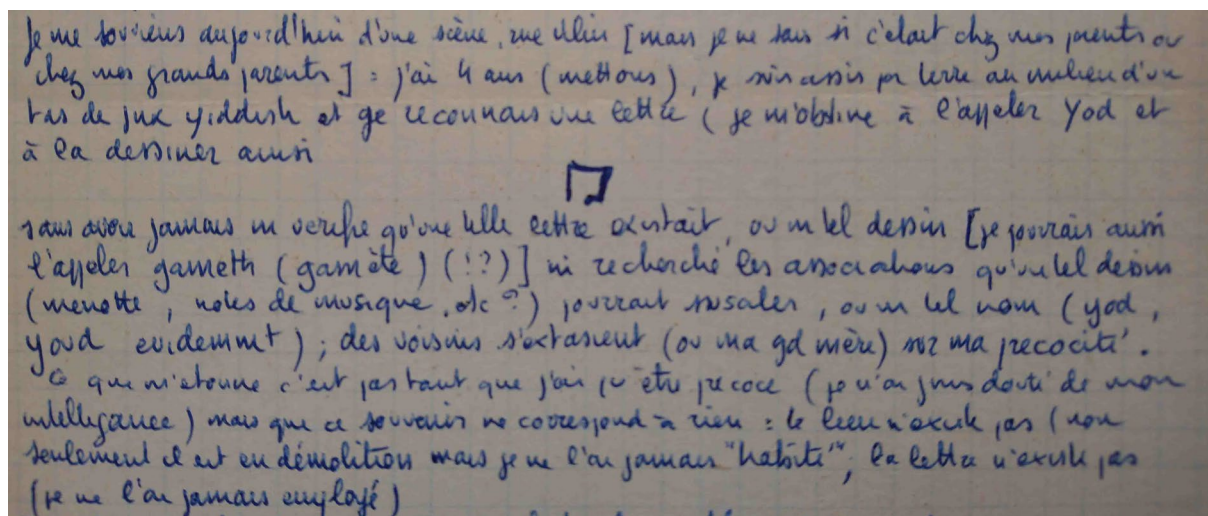 Je me souviens aujourd'hui d'une scène, rue Vilin [mais je ne sais si c'était chez mes parents ou
chez mes grands parents] : j'ai 4 ans (mettons), je suis assis par terre au milieu d'un
tas de jnx yiddish et je reconnais une lettre (je m'obstine à l'appeler Yod et
à la dessiner ainsi
sans avoir jamais ni vérifié qu'une telle lettre existait, ou un tel dessin [je pourrais aussi
l'appeler gameth (gamète) (!?)] ni recherché les associations qu'un tel dessin
(menotte, notes de musique, etc ?) pourrait susciter, ou un tel nom (yod,
youd evidemmt) ; des voisins s'extasient (ou ma gd mère) sur ma précocité.
Ce qui m'étonne c'est pas tant que j'ai pu être précoce (je n'ai jms douté de mon
intelligence) mais que ce souvenir ne correspond à rien : le lieu n'existe pas (non
seulement il est en démolition mais je ne l'ai jamais "habité", la lettre n'existe pas
(je ne l'ai jamais employé)